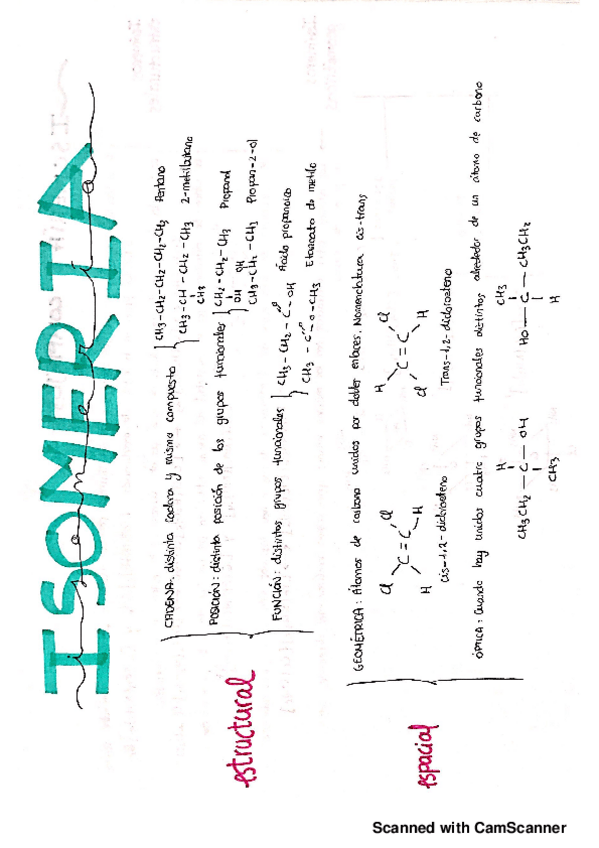 ISOMERIA
estructural
CADENA: distinta cadena y mismo compuesto
CH3-CH2-CH2-CH2-CH3 Pentano
CH3-CH-CH2-CH3 2-metilbutano
CH3
POSICIÓN: distinta posición de los grupos funcionales
CH2-CH2-CH3 Propanol
OH
OH
CH3-CH2-CH3 Propan-2-ol
FUNCIÓN: distintos grupos funcionales
CH3-CH2-C-OH Ácido propanoico
O
CH3-C-O-CH3 Etanoato de metilo
O
espacial
GEOMÉTRICA: Átomos de carbono unidos por dobles enlaces. Nomenclatura cis-trans
Cl Cl
C=C
H H
cis-1,2-
H Cl
C=C
Cl H
Trans-1,2-
ÓPTICA: Cuando hay unidos cuatro grupos funcionales distintos alrededor de un átomo de carbono
H
CH3CH2-C-OH
CH3
CH3
HO-C-CH3CH2
H
Scanned with CamScanner